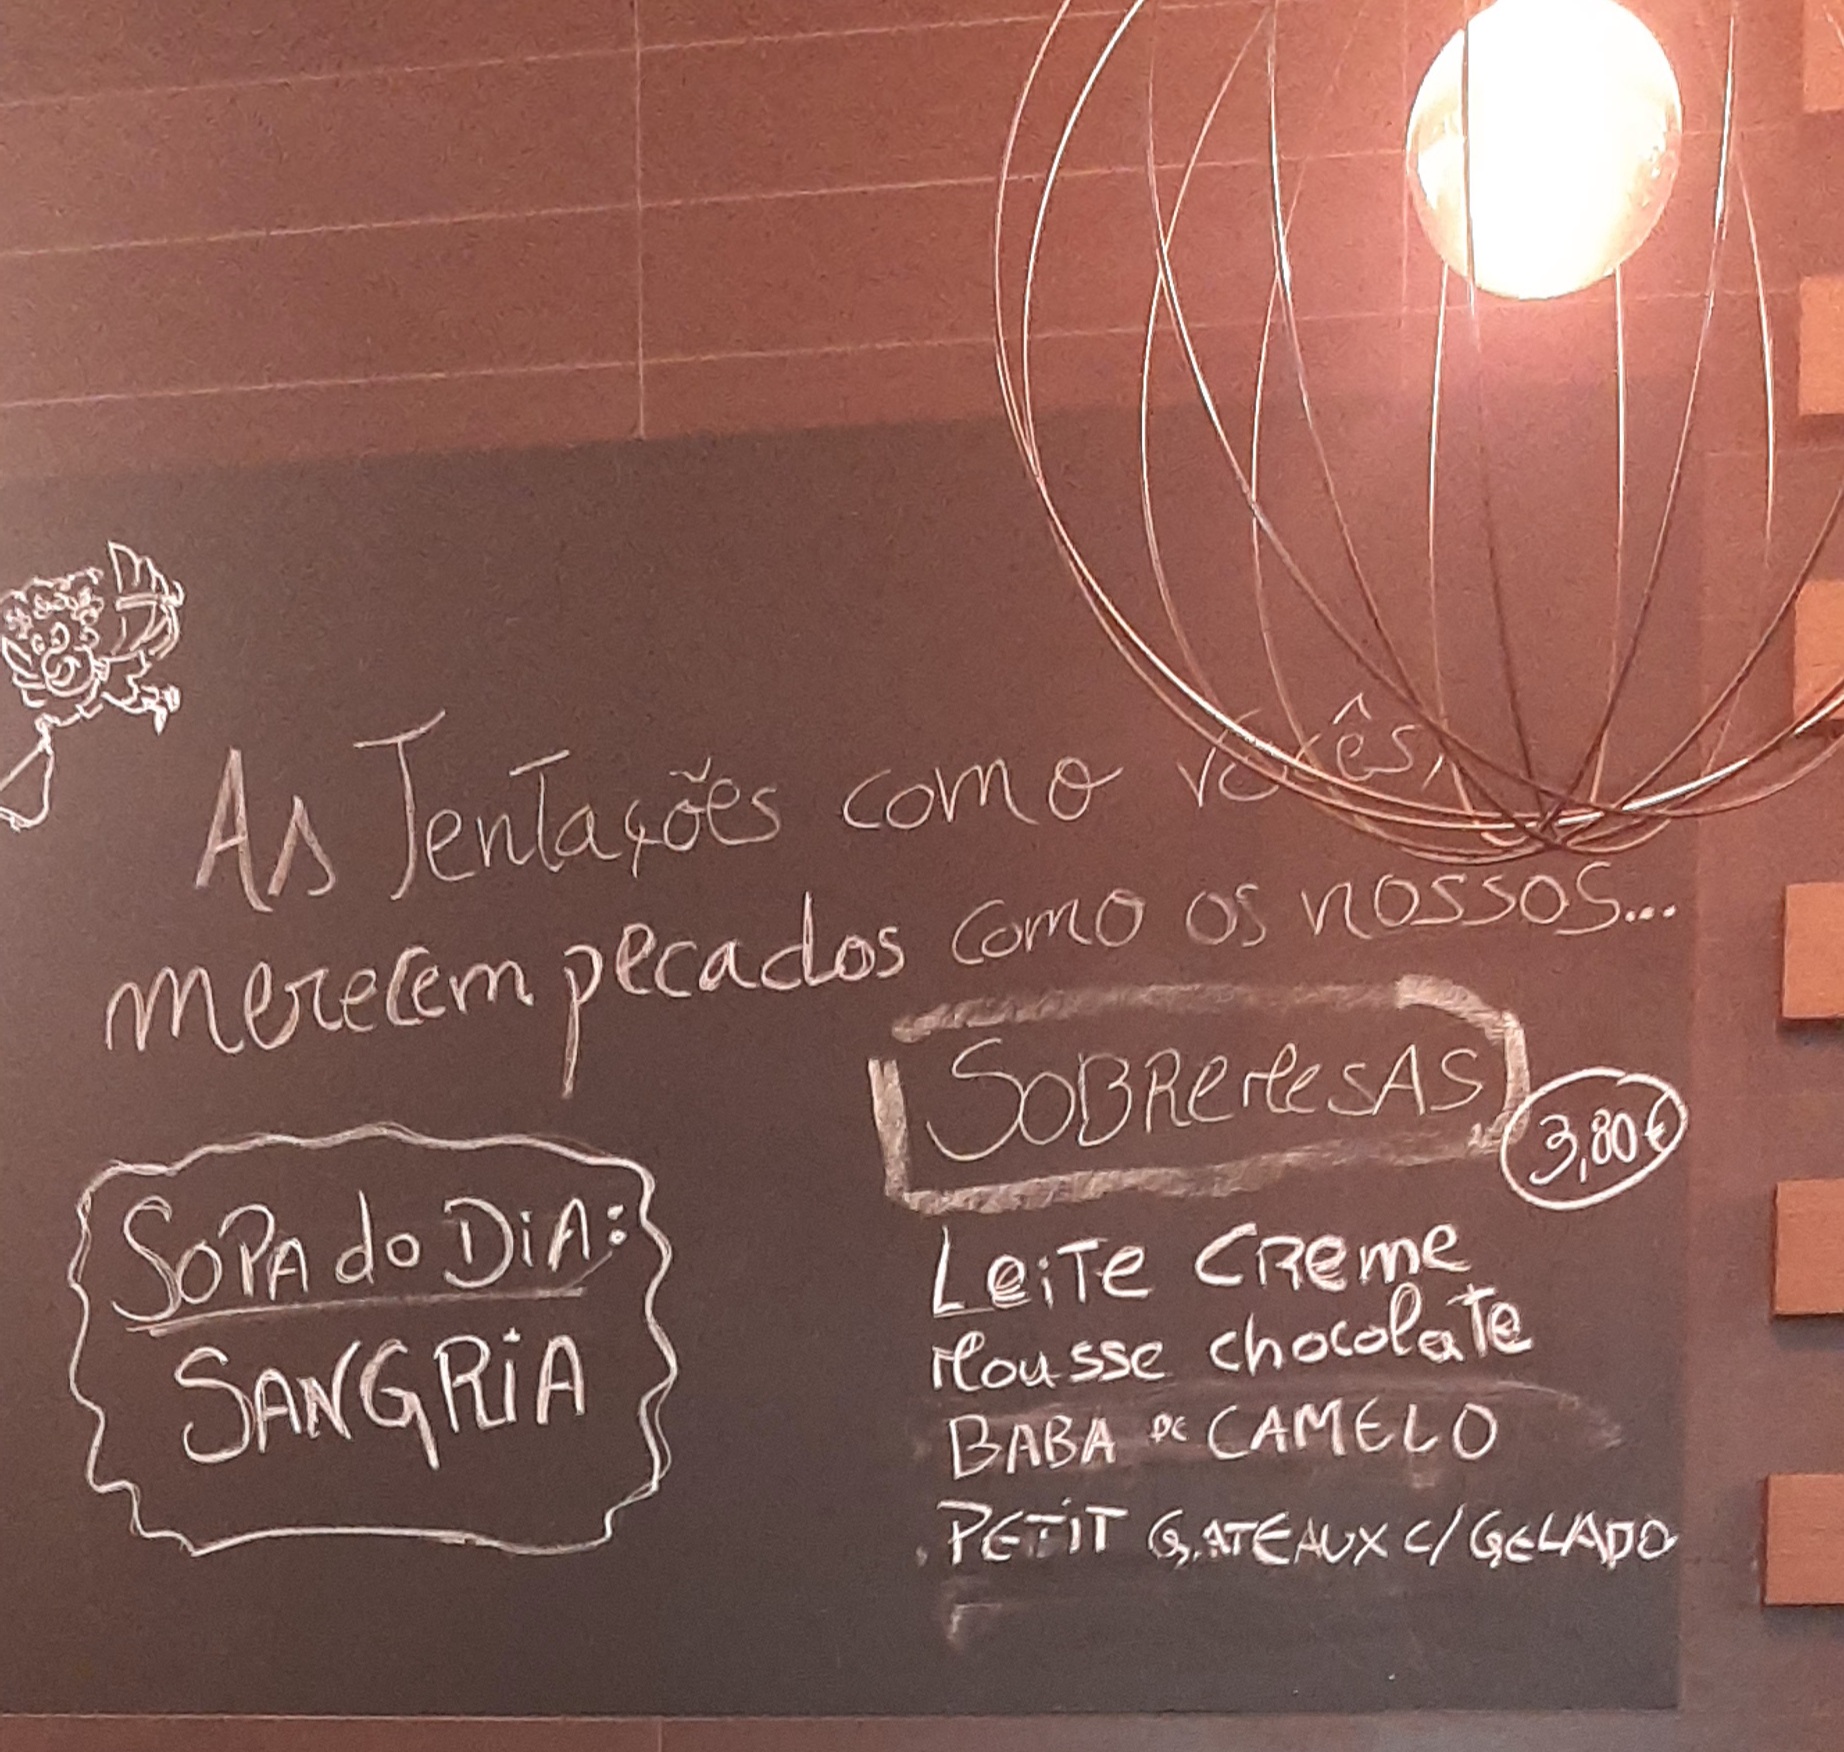 As Tentações como vocês,
merecem pecados como os nossos...
SOBREMESAS
3,80€
SOPA do DIA:
SANGRIA
Leite Creme
Mousse chocolate
BABA DE CAMELO
PETIT GATEAUX C/ GELADO